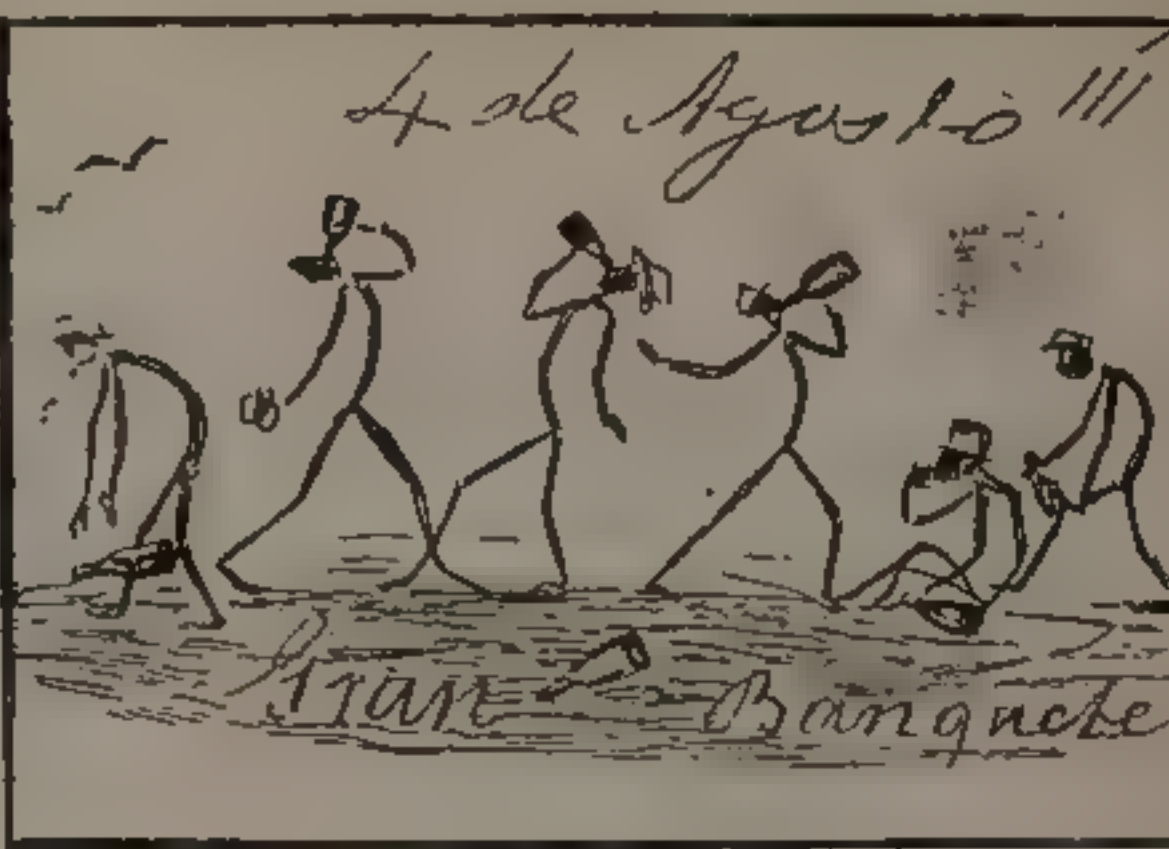 4 de Agosto !!!
Gran Banquete